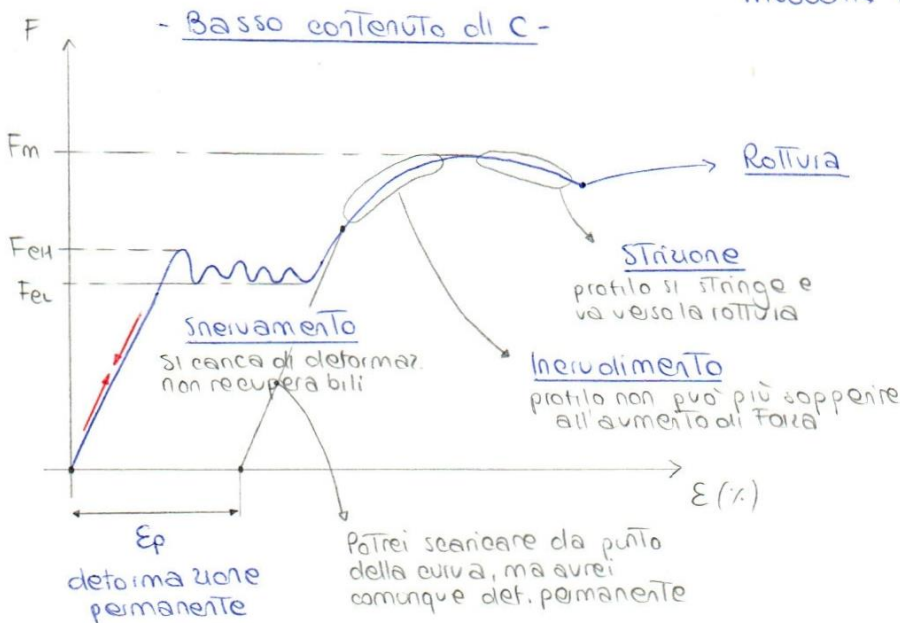 - Basso contenuto di C -
F
Fm
FeH
FeL
Rottura
Strizione
profilo si stringe e
va verso la rottura
Snervamento
si carica di deformaz.
non recuperabili
Incrudimento
profilo non può più sopperire
all'aumento di Forza
ε (%)
εp
deformazione
permanente
Potrei scaricare da punto
della curva, ma avrei
comunque def. permanente